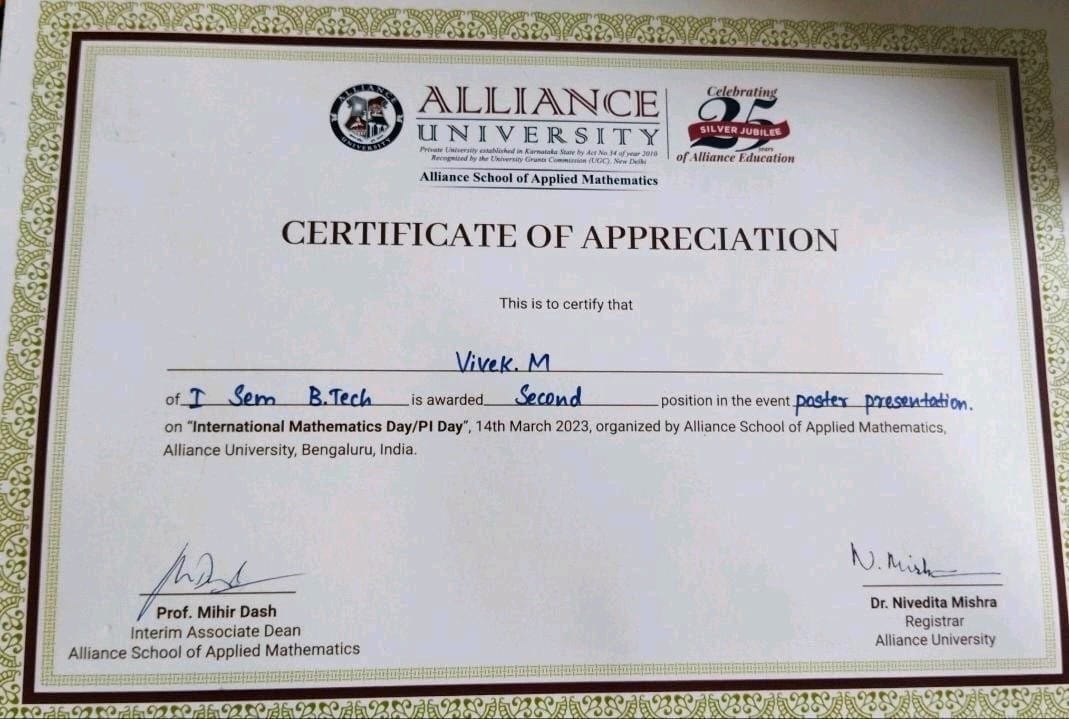 ALLIANCE
UNIVERSITY
ALLIANCE
UNIVERSITY
Private University established in Karnataka State by Act No.34 of year 2010
Recognized by the University Grants Commission (UGC), New Delhi
Alliance School of Applied Mathematics
Celebrating
25
SILVER JUBILEE
years
of Alliance Education
CERTIFICATE OF APPRECIATION
This is to certify that
Vivek. M
of I Sem B.Tech is awarded Second position in the event poster presentation.
on “International Mathematics Day/PI Day”, 14th March 2023, organized by Alliance School of Applied Mathematics,
Alliance University, Bengaluru, India.
Prof. Mihir Dash
Interim Associate Dean
Alliance School of Applied Mathematics
N. Mish
Dr. Nivedita Mishra
Registrar
Alliance University